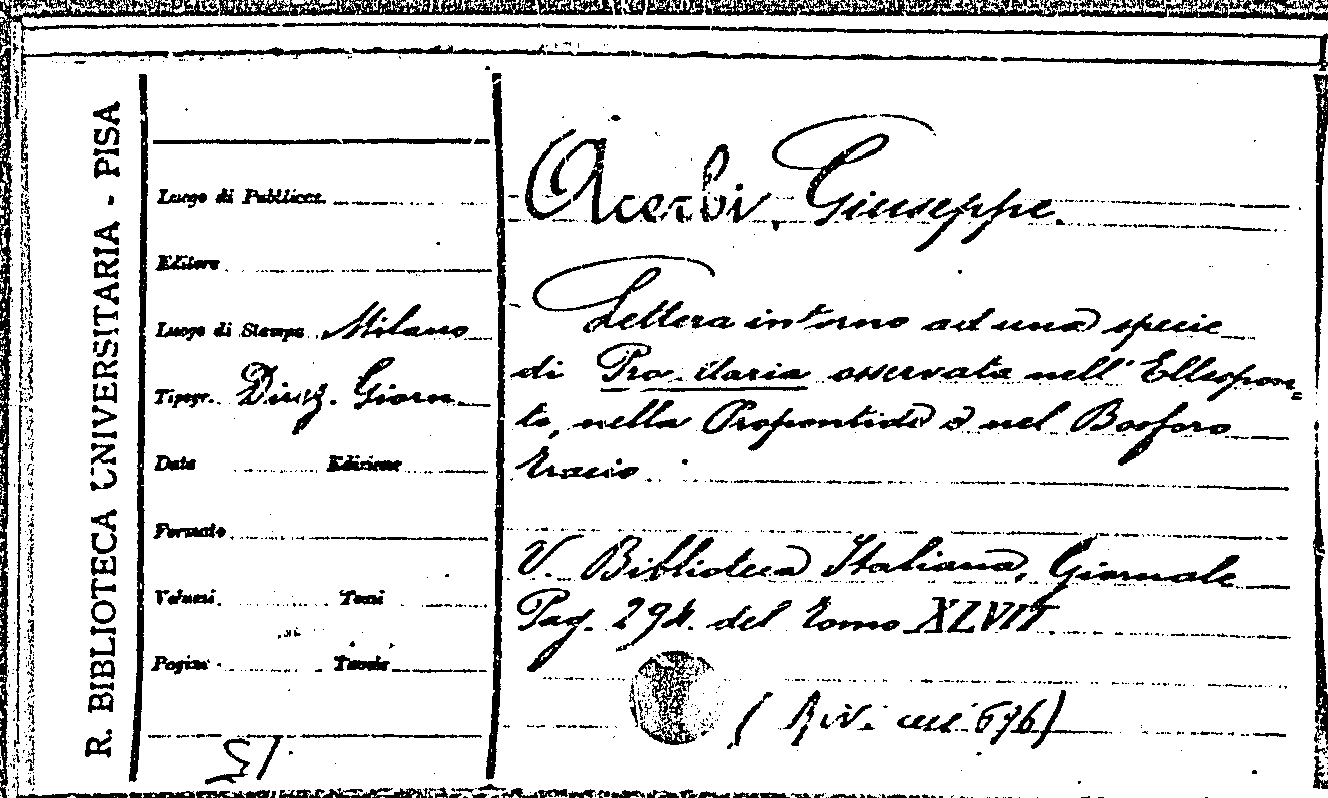 R. BIBLIOTECA UNIVERSITARIA - PISA
Luogo di Pubblicaz.
Editore
Luogo di Stampa Milano
Tipogr. Direz. Giorn.
Data Edizione
Formato
Volumi Tomi
Pagine Tavole
Acerbi, Giuseppe.
Lettera intorno ad una specie
di Procellaria osservata nell'Ellespon=
to, nella Propontide e nel Bosforo
tracio.
V. Biblioteca Italiana, Giornale
Pag. 294. del tomo XLVII
( Riv. 676)